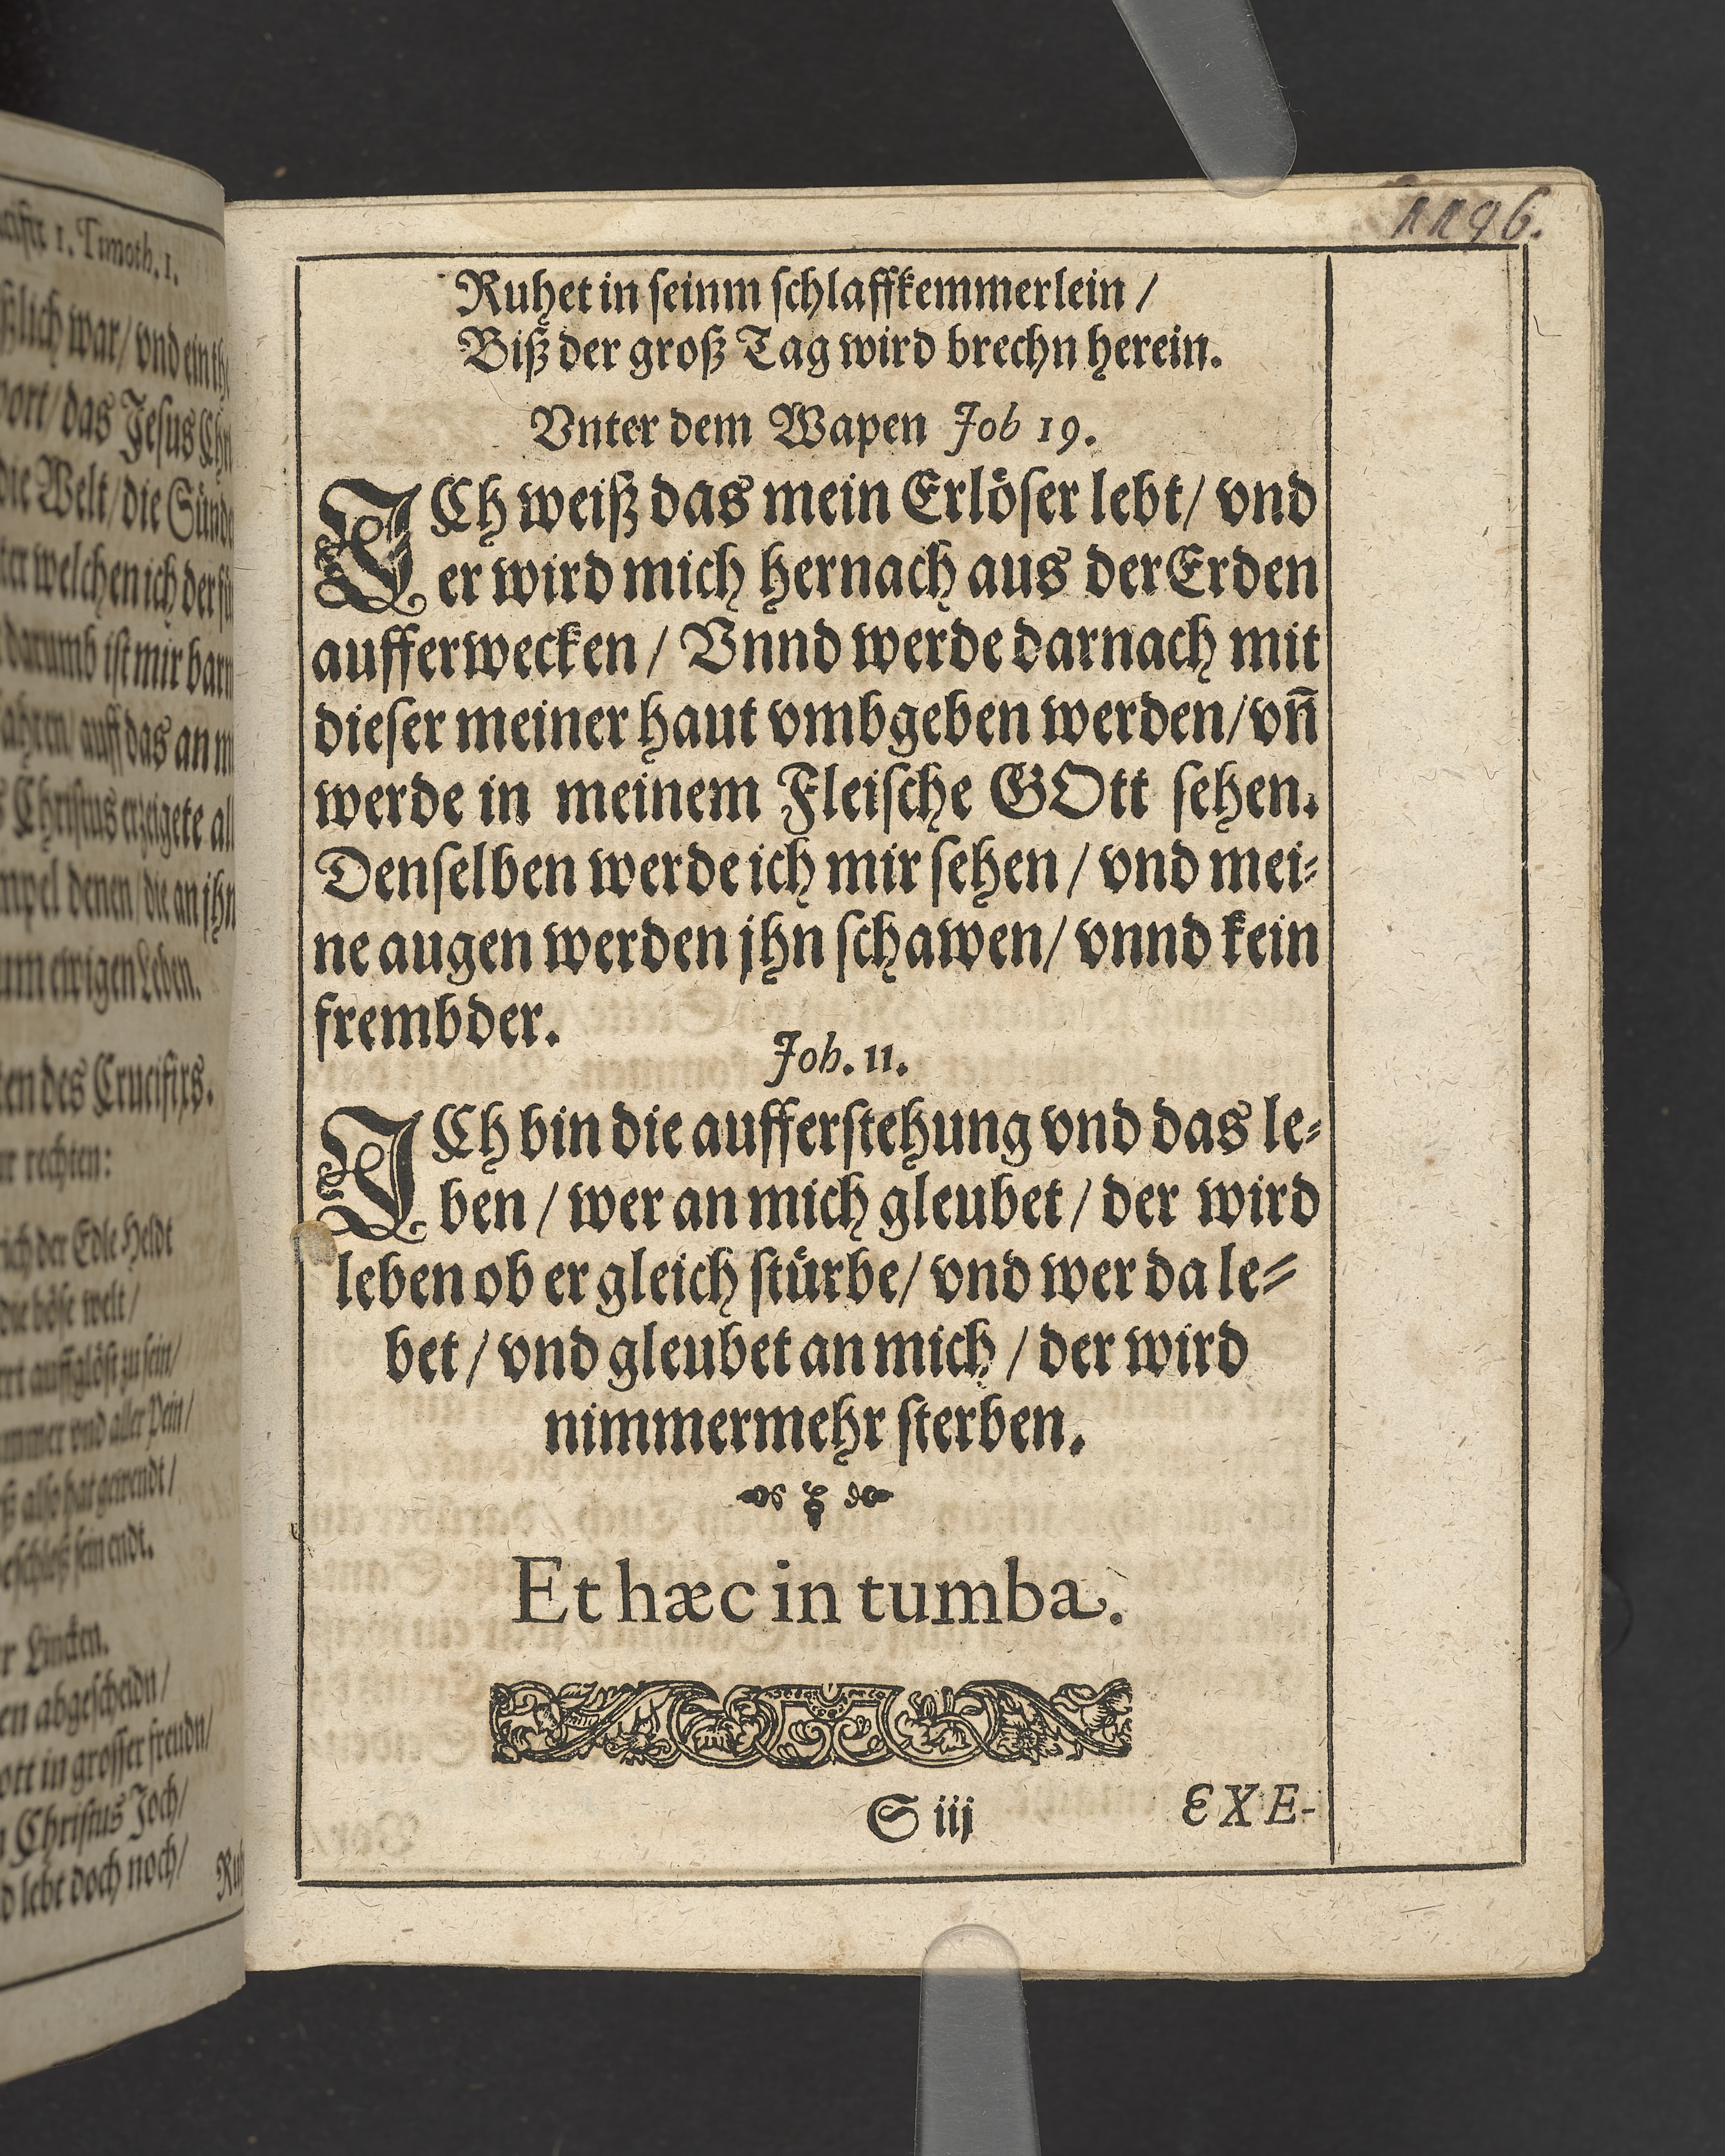 1. Timoth. 1.
war/ vnd ein
das Jesus
die Welt/ die
welchen ich der
darumb ist mir
auff das an
Christus erzeigete
denen/ die an jhn
ewigen Leben.
des Crucifixs.
rechten:
der Edle Heldt
die böse welt/
auffglöst zu sein/
vnd aller Pein/
also hat gewendt/
sein endt.
Lincken.
abgescheidn/
in grosser freudn/
Christus Joch/
lebt doch noch/
1196.
Ruhet in seinm schlaffkemmerlein /
Biß der groß Tag wird brechn herein.
Vnter dem Wapen Job 19.
ICh weiß das mein Erlöser lebt/ vnd
er wird mich hernach aus der Erden
aufferwecken / Vnnd werde darnach mit
dieser meiner haut vmbgeben werden/ vn̄
werde in meinem Fleische GOtt sehen.
Denselben werde ich mir sehen / vnd mei-
ne augen werden jhn schawen/ vnnd kein
frembder.
Joh. 11.
ICh bin die aufferstehung vnd das le-
ben / wer an mich gleubet / der wird
leben ob er gleich stürbe/ vnd wer da le-
bet / vnd gleubet an mich / der wird
nimmermehr sterben.
Et hæc in tumba.
S iij
EXE-